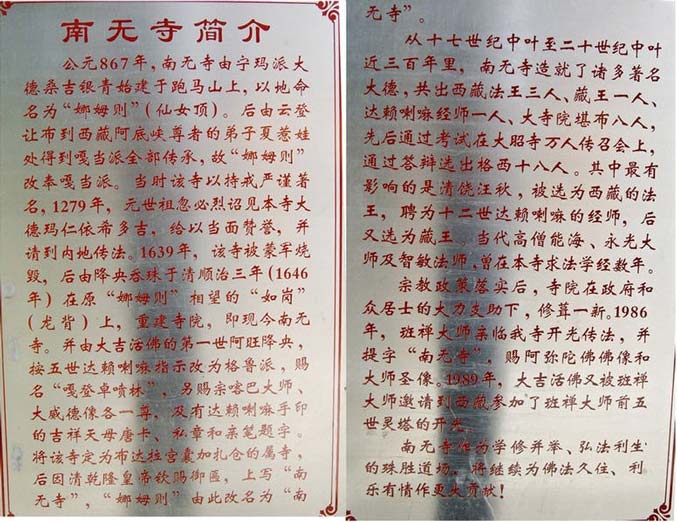 南无寺简介
公元867年，南无寺由宁玛派大
德桑吉银青始建于跑马山上，以地命
名为“娜姆则”(仙女顶)。后由云登
让布到西藏阿底峡尊者的弟子夏惹娃
处得到嘎当派全部传承，故“娜姆则”
改奉嘎当派。当时该寺以持戒严谨著
名，1279年，元世祖忽必烈诏见本寺大
德玛仁依希多吉，给以当面赞誉，并
请到内地传法。1639年，该寺被蒙军烧
毁，后由降央吞珠于清顺治三年(1646
年)在原“娜姆则”相望的“如岗”
(龙背)上，重建寺院，即现今南无
寺。并由大吉活佛的第一世阿旺降央，
按五世达赖喇嘛指示改为格鲁派，赐
名“嘎登卓喷林”，另赐宗喀巴大师、
大威德像各一尊，及有达赖喇嘛手印
的吉祥天母唐卡、私章和亲笔题字。
将该寺定为布达拉宫囊加扎仓的属寺，
后因清乾隆皇帝钦赐御匾，上写“南
无寺”，“娜姆则”由此改名为“南
无寺”。
从十七世纪中叶至二十世纪中叶
近三百年里，南无寺造就了诸多著名
大德，共出西藏法王三人、藏王一人、
达赖喇嘛经师一人、大寺院堪布八人，
先后通过考试在大昭寺万人传召会上，
通过答辩选出格西十八人。其中最有
影响的是清饶汪秋，被选为西藏的法
王，聘为十二世达赖喇嘛的经师，后
又选为藏王。当代高僧能海、永光大
师及智敏法师，曾在本寺求法学经数年。
宗教政策落实后，寺院在政府和
众居士的大力支助下，修葺一新。1986
年，班禅大师亲临我寺开光传法，并
提字“南无寺”，赐阿弥陀佛佛像和
大师圣像。1989年，大吉活佛又被班禅
大师邀请到西藏参加了班禅大师前五
世灵塔的开光。
南无寺作为学修并举、弘法利生
的殊胜道场，将继续为佛法久住、利
乐有情作更大贡献！